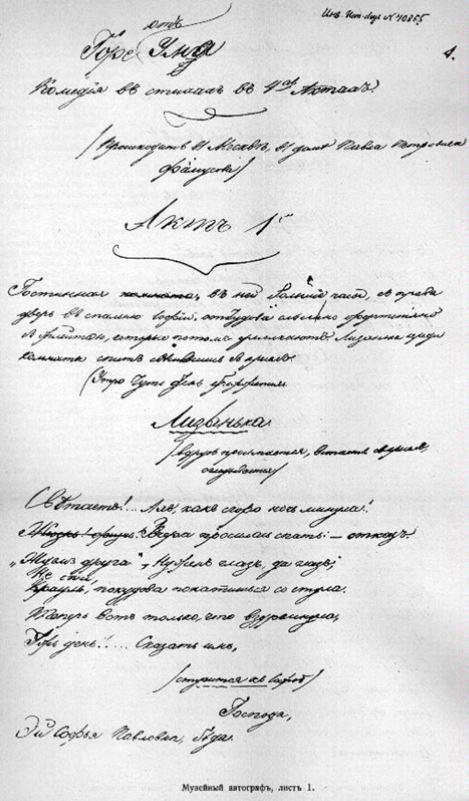 1.
отъ
Горе Ума
Комедія въ стихахъ въ 4хъ Актахъ.
(Происходитъ въ Москвѣ, въ домѣ Павла Петровича
Фамусова)
Актъ 1й
Гостинная комната, въ ней большіе часы, съ права
дверь въ спальню Софіи, откудова слышно фортепіяно
съ флейтою, которыя потомъ умолкаютъ. Лизанька среди
комнаты спитъ свѣсившись съ креслъ.
(Утро чуть день
Лизанька
(вдругъ просыпается, встаетъ съ креслъ,
оглядывается)
Свѣтаетъ!... Ахъ, какъ скоро ночь минула!
Вчера просилась спать: — отказъ.
„Ждемъ друга“, Нуженъ глазъ, да глазъ;
Не спи,
покудова не скатишься со стула.
Теперь вотъ только, что вздремнула,
Ужъ день!.... Сказать имъ,
(стучится къ Софьѣ)
Господа,
Эй Софья Павловна, бѣда.
Музейный автографъ, листъ 1.